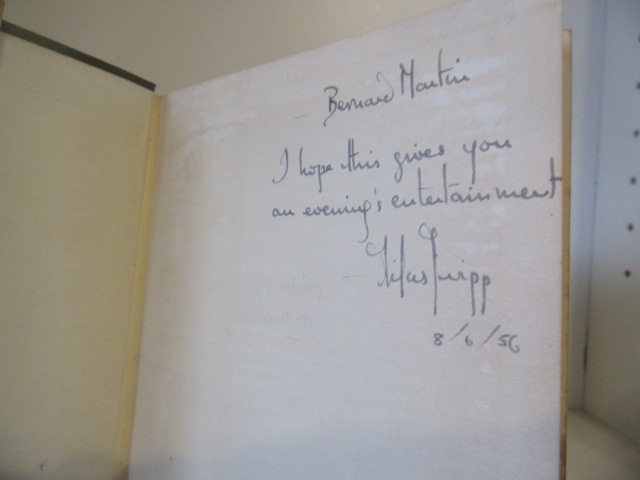 Bernard Martin
I hope this gives you
an evening's entertainment
8/6/56